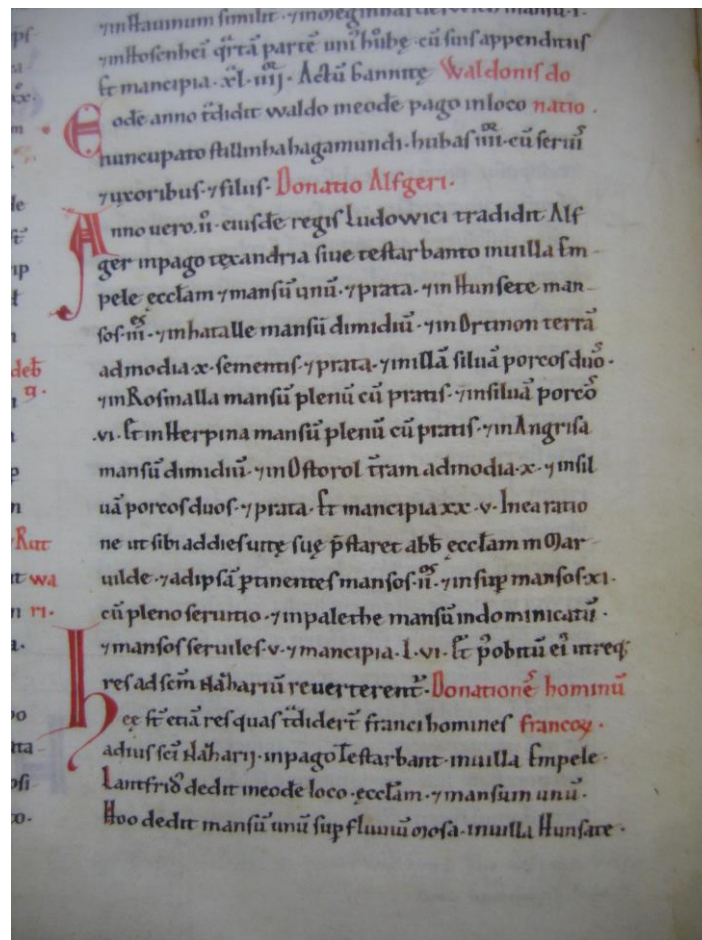 ⁊ in hauinum similit̄ · ⁊ in
⁊ in hosenheı̄ q̄rtā partē uni᾽ hūbę · cū suis appenditiis
Et mancipia · xl · iiij · Actū bannitę Waldonis do
Eodē anno t̄didit waldo in eodē pago in loco natio ·
nuncupato stillinbahagamundi · hubas iiii · cū seruis
⁊ uxoribus · ⁊ filiis · Donatio Alfgeri ·
Anno uero · ii · eiusdē regis Ludowici tradidit Alf
ger in pago texandria siue testarbanto in uilla Em-
pele ęccl̄am ⁊ mansū unū · ⁊ prata · ⁊ in Hunsete man-
sos · iii · ⁊ in hatalle mansū dimidiū · ⁊ in Ortinon terrā
ad modia · x · sementis · ⁊ prata · ⁊ in illā siluā porcos duo᷒ ·
⁊ in Rosmalla mansū plenū cū pratis · ⁊ in siluā porco᷒
· vi · Et in Herpina mansū plenū cū pratis · ⁊ in Angrisa
mansū dimidiū · ⁊ in Ostorol t̄ram ad modia · x · ⁊ in sil
uā porcos duos · ⁊ prata · Et mancipia xx · v · In ea ratio
ne ut sibi ad dies uitę suę p̄staret abb̄ ęccl̄am in Mar-
uilde · ⁊ ad ipsā ꝑtinentes mansos · ii · ⁊ insuꝑ mansos · xi ·
cū pleno seruitio · ⁊ in palethe mansū indominicatū ·
⁊ mansos seruiles · v · ⁊ mancipia · l · vi · Et p᷒ obitū ei᾽ utreq;
res ad sc̄m Naҟariū reuerterent᷑ · Donatione᷒ hominū
Hęę st̄ etiā res quas t̄didert̄ franci homines francoꝝ ·
ad ius sc̄i Naҟarij · in pago Testarbant · in uilla Empele ·
Lantfrid᷒ dedit in eodē loco · ęccl̄am · ⁊ mansum unū ·
Hoo dedit mansū unū suꝑ fluuiū mosa · in uilla Hunsate ·